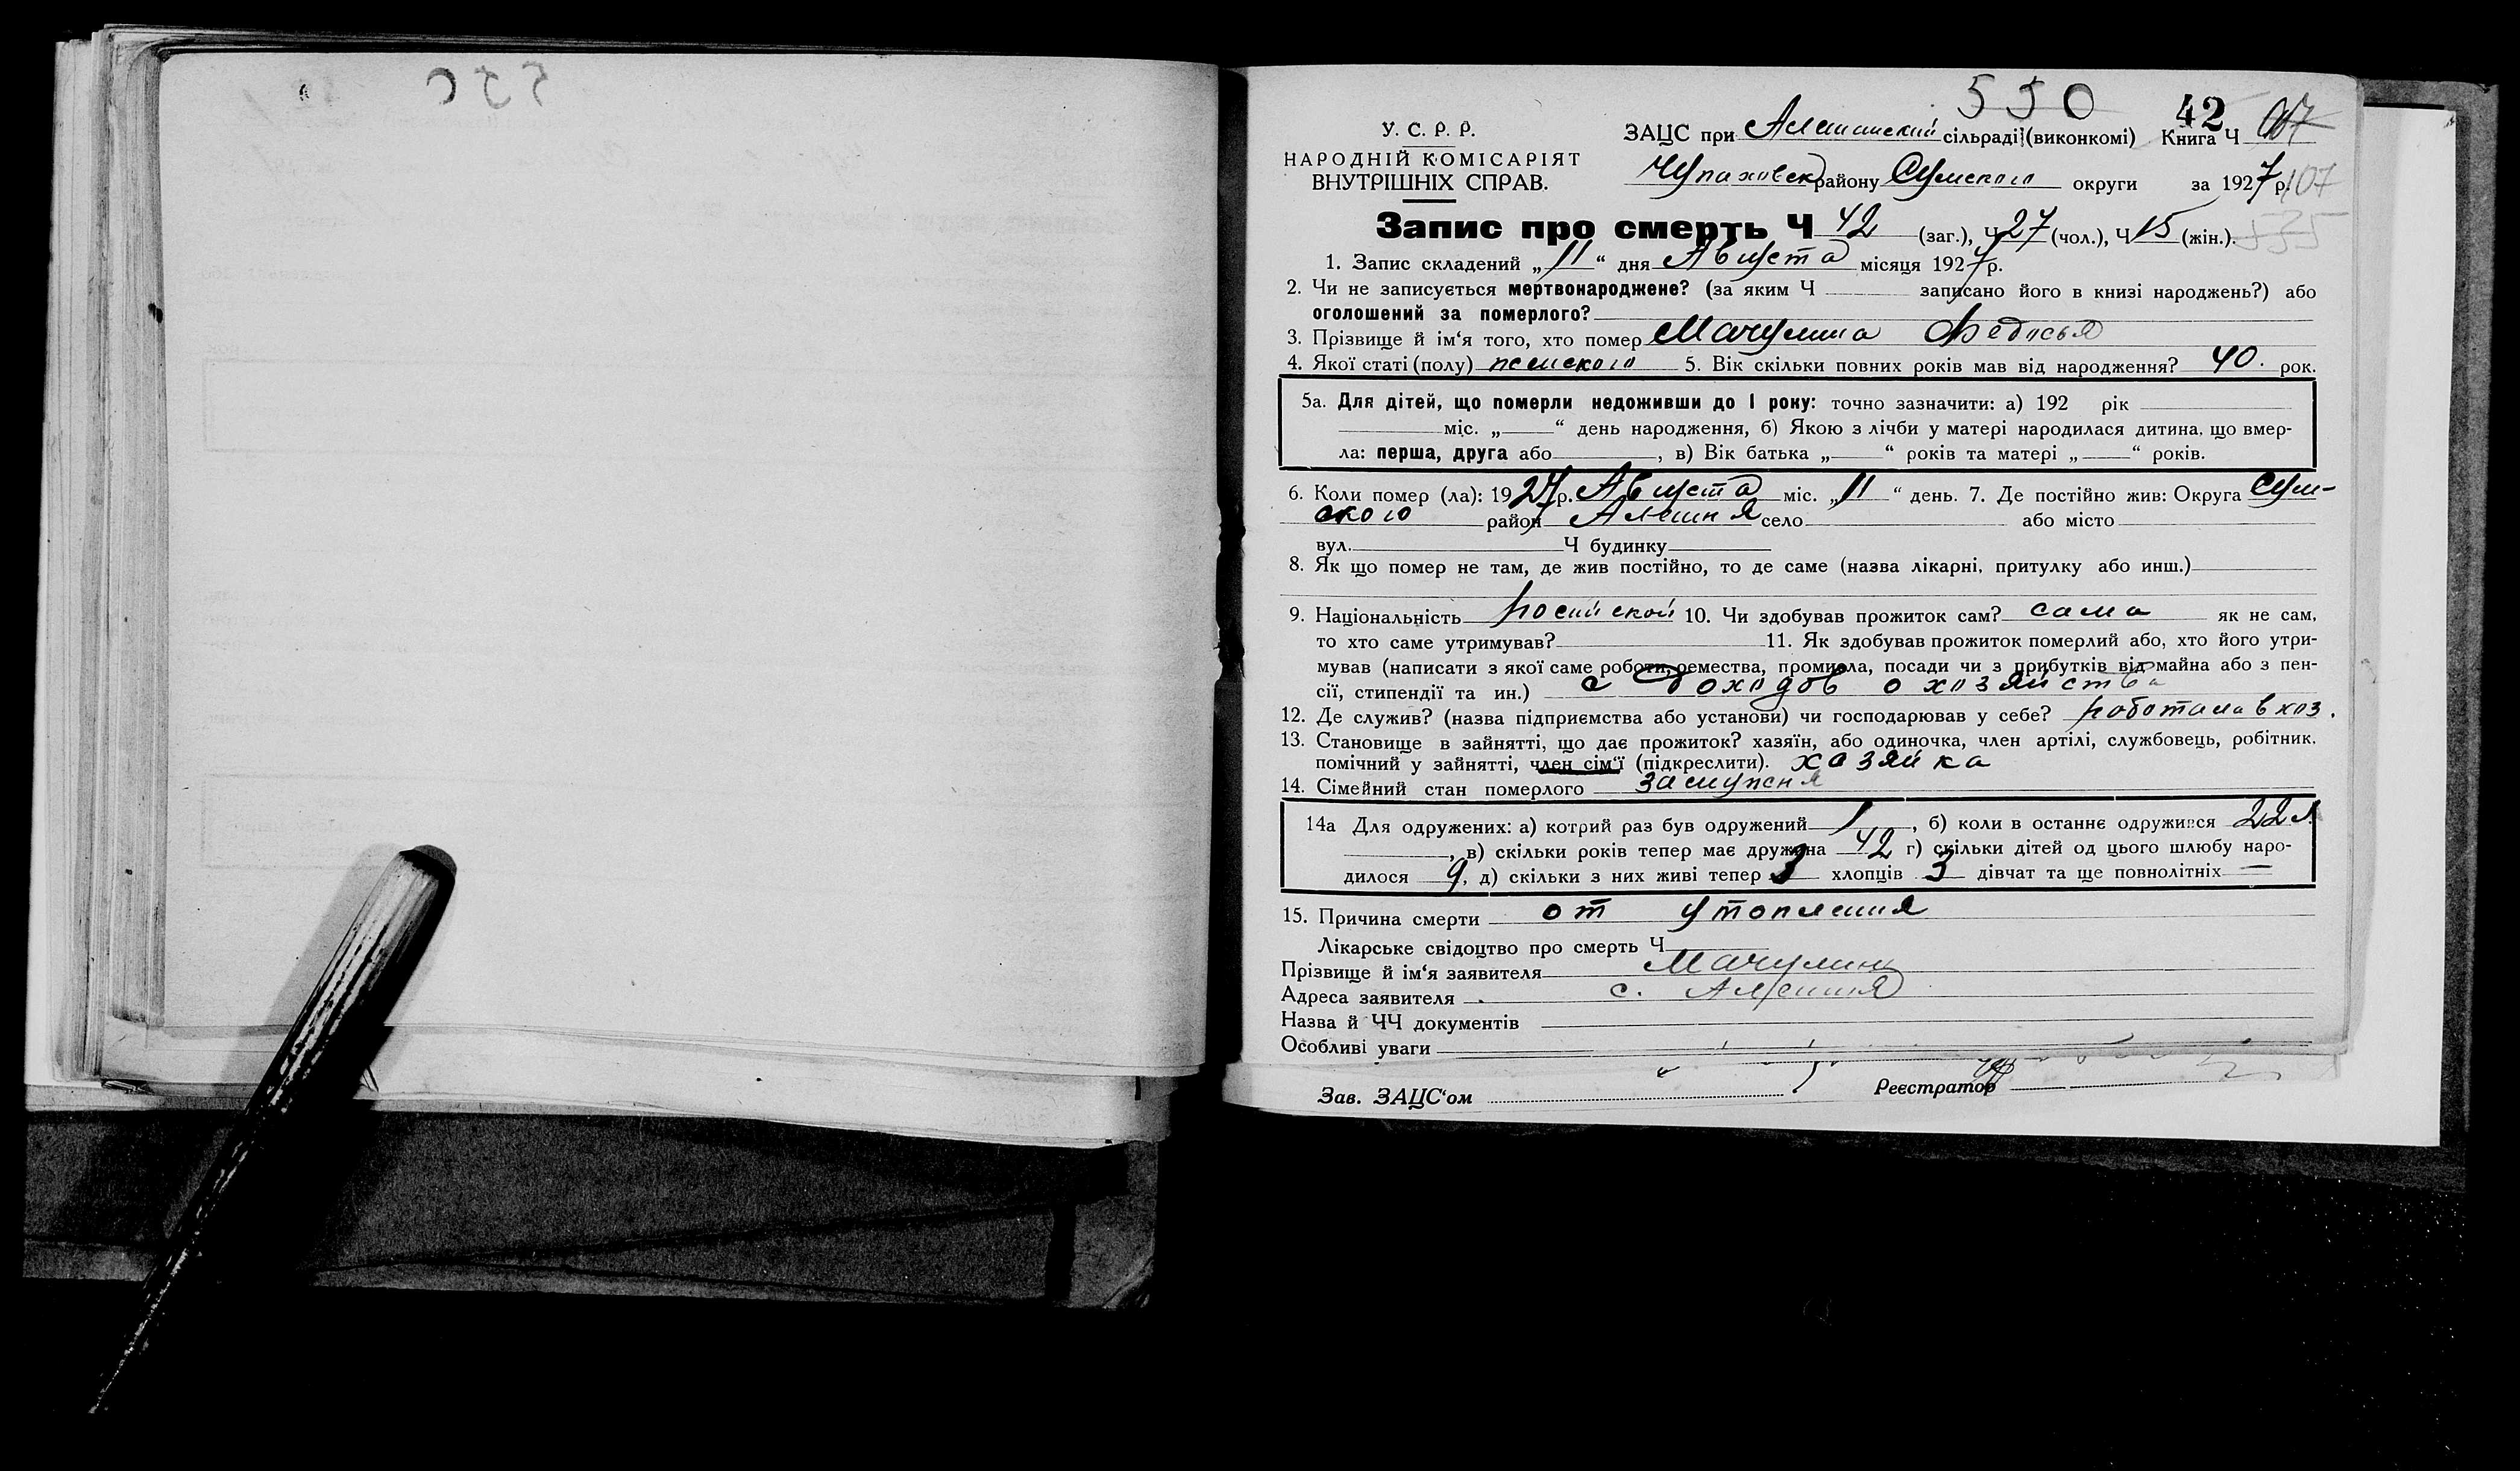 550
42
У. С. Р. Р.
ЗАЦС при Алешанский сільраді (виконкомі) Книга Ч 107
НАРОДНІЙ КОМІСАРІЯТ
ВНУТРІШНІХ СПРАВ.
Чупаховск району Сумского округи за 1927 р. 107
Запис про смерть Ч 42 (заг.), Ч 27 (чол.), Ч 15 (жін.). 535
1. Запис складений „11“ дня Августа місяця 1927 р.
2. Чи не записується мертвонароджене? (за яким Ч записано його в книзі народжень?) або
оголошений за померлого?
3. Прізвище й ім‘я того, хто помер Мачулина Федосья
4. Якої статі (полу) женского 5. Вік скільки повних років мав від народження? 40. рок.
5а. Для дітей, що померли недоживши до 1 року: точно зазначити: а) 192 рік
міс. „ “ день народження, б) Якою з лічби у матері народилася дитина, що вмер-
ла: перша, друга або , в) Вік батька „ “ років та матері „ “ років.
6. Коли помер (ла): 1927 р. Августа міс. „11“ день. 7. Де постійно жив: Округа Сум-
ского район Алешня село або місто
вул. Ч будинку
8. Як що помер не там, де жив постійно, то де саме (назва лікарні, притулку або инш.)
9. Національність росийской 10. Чи здобував прожиток сам? сама як не сам,
то хто саме утримував? 11. Як здобував прожиток померлий або, хто його утри-
мував (написати з якої саме роботи, ремества, промисла, посади чи з прибутків від майна або з пен-
сії, стипендії та ин.) с доходов о хозяйства
12. Де служив? (назва підприємства або установи) чи господарював у себе? работала в хоз.
13. Становище в зайнятті, що дає прожиток? хазяїн, або одиночка, член артілі, службовець, робітник.
помічний у зайнятті, член сім‘ї (підкреслити). хазяйка
14. Сімейний стан померлого замужня
14а Для одружених: а) котрий раз був одружений 1, б) коли в останнє одружився 22 л.
, в) скільки років тепер має дружина 42 г) скільки дітей од цього шлюбу наро-
дилося 9, д) скільки з них живі тепер 3 хлопців 3 дівчат та ще повнолітніх —
15. Причина смерти от утопления
Лікарське свідоцтво про смерть Ч
Прізвище й ім‘я заявителя Мачулин
Адреса заявителя с. Алешня
Назва й ЧЧ документів
Особливі уваги
Зав. ЗАЦС‘ом Реєстратор